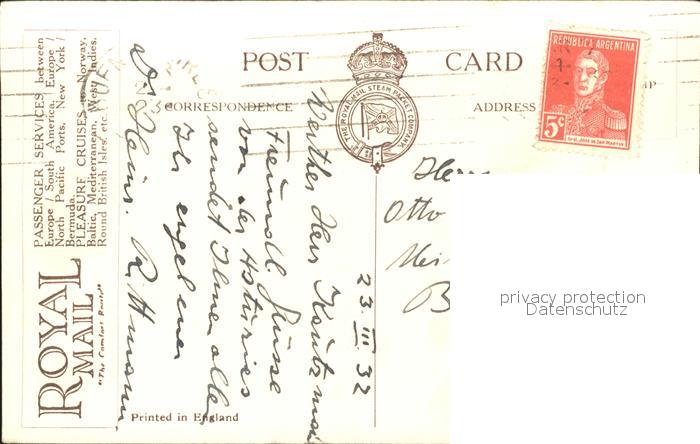 POST CARD
CORRESPONDENCE
ADDRESS
THE ROYAL MAIL STEAM PACKET COMPANY
REPUBLICA ARGENTINA
5c
GRAL. JOSE DE SAN MARTIN
PASSENGER SERVICES between
Europe / South America, Europe /
North Pacific Ports, New York /
Bermuda.
PLEASURE CRUISES to Norway,
Baltic, Mediterranean, West Indies.
Round British Isles, etc.
ROYAL
MAIL
"The Comfort Route"
23. III. 32
Werther Herr
Freundl. Grüsse
von der Asturias
sendet Ihnen allen
Ihr ergebener
Dr Heinr.
Herrn
Otto
privacy protection
Datenschutz
Printed in England